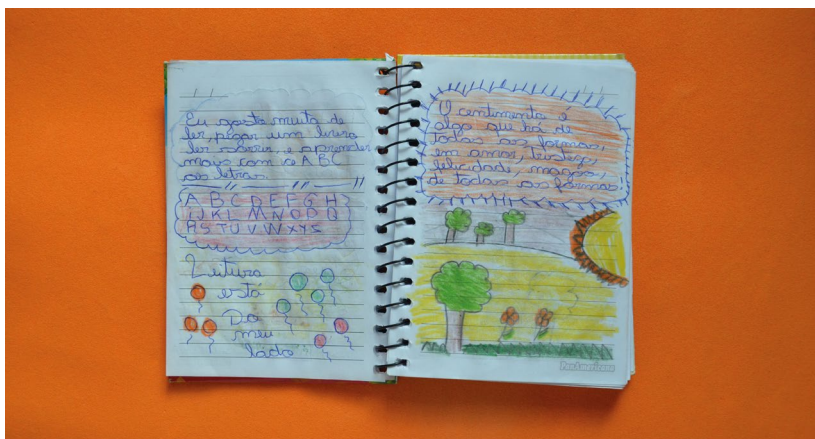 Eu gosto muito de
ler, pegar um livro
ler sorrir e aprender
mais com o ABC
as letras
A B C D E F G H
I J K L M N O P Q
R S T U V W X Y Z
Leitura
está
Do
meu
lado
O centimento é
algo que há de
todas as formas,
em amor, tristeza,
felicidade, magoas,
de todas as formas.